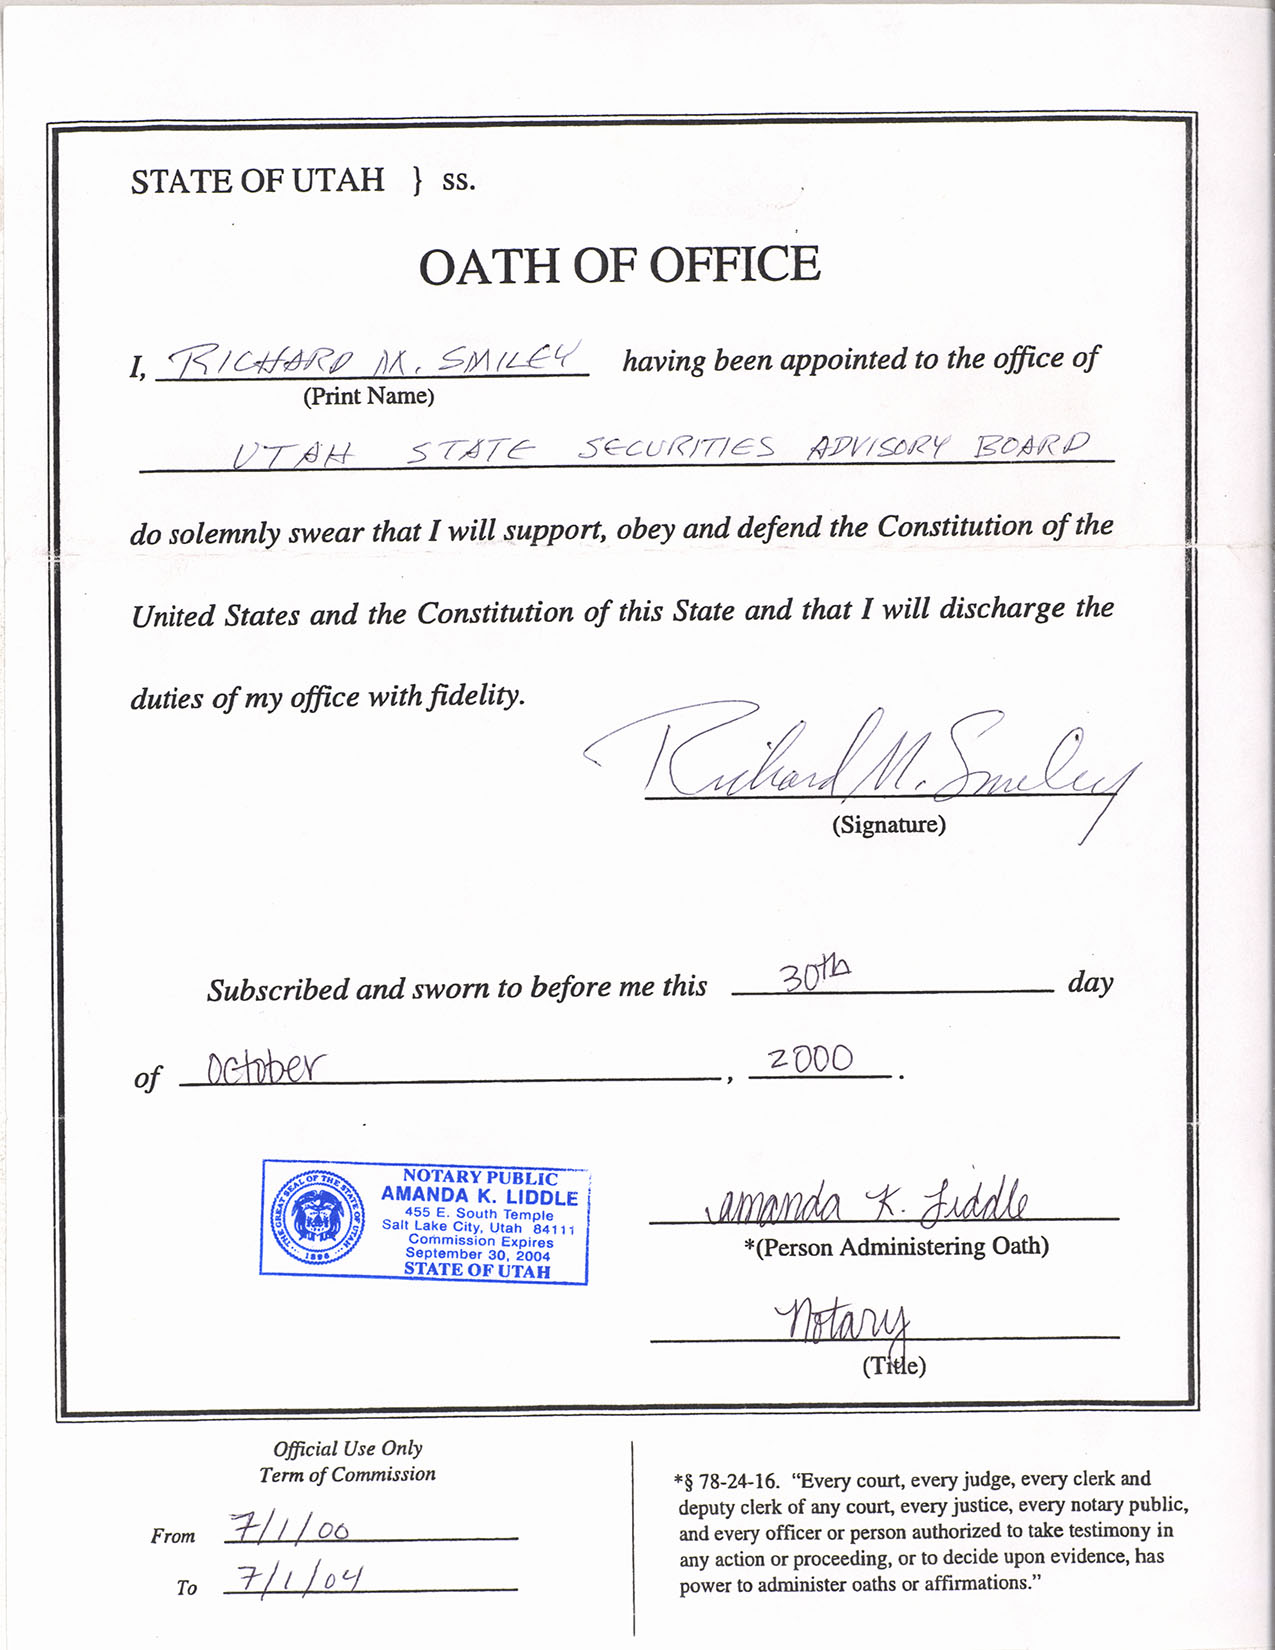 STATE OF UTAH } ss.
OATH OF OFFICE
I, RICHARD M. SMILEY having been appointed to the office of
(Print Name)
UTAH STATE SECURITIES ADVISORY BOARD
do solemnly swear that I will support, obey and defend the Constitution of the
United States and the Constitution of this State and that I will discharge the
duties of my office with fidelity.
Richard M. Smiley
(Signature)
Subscribed and sworn to before me this 30th day
of October, 2000.
THE GREAT SEAL OF THE STATE OF UTAH
1896
NOTARY PUBLIC
AMANDA K. LIDDLE
455 E. South Temple
Salt Lake City, Utah 84111
Commission Expires
September 30, 2004
STATE OF UTAH
Amanda K. Liddle
*(Person Administering Oath)
Notary
(Title)
Official Use Only
Term of Commission
From 7/1/00
To 7/1/04
*§ 78-24-16. “Every court, every judge, every clerk and
deputy clerk of any court, every justice, every notary public,
and every officer or person authorized to take testimony in
any action or proceeding, or to decide upon evidence, has
power to administer oaths or affirmations.”